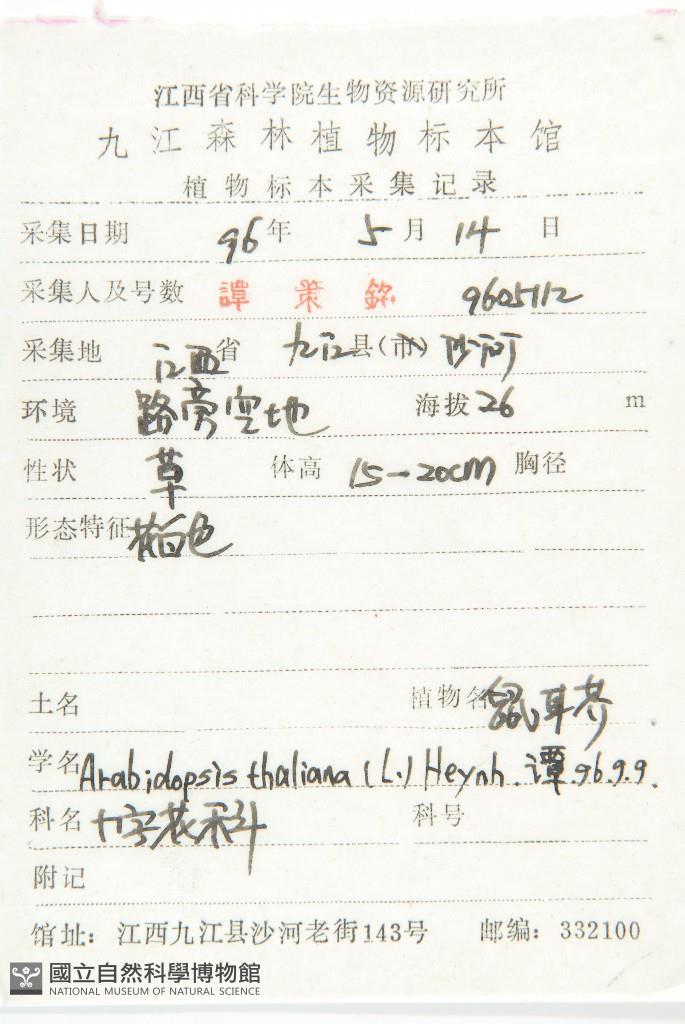 江西省科学院生物资源研究所
九江森林植物标本馆
植物标本采集记录
采集日期 96年 5月 14日
采集人及号数 譚策銘 9605112
采集地 江西省 九江县(市) 沙河
环境 路旁空地 海拔 26 m
性状 草 体高 15-20cm 胸径
形态特征 花白色
土名 植物名 鼠耳芥
学名 Arabidopsis thaliana (L.) Heynh. 譚 96.9.9.
科名 十字花科 科号
附记
馆址：江西九江县沙河老街143号 邮编：332100
國立自然科學博物館
NATIONAL MUSEUM OF NATURAL SCIENCE